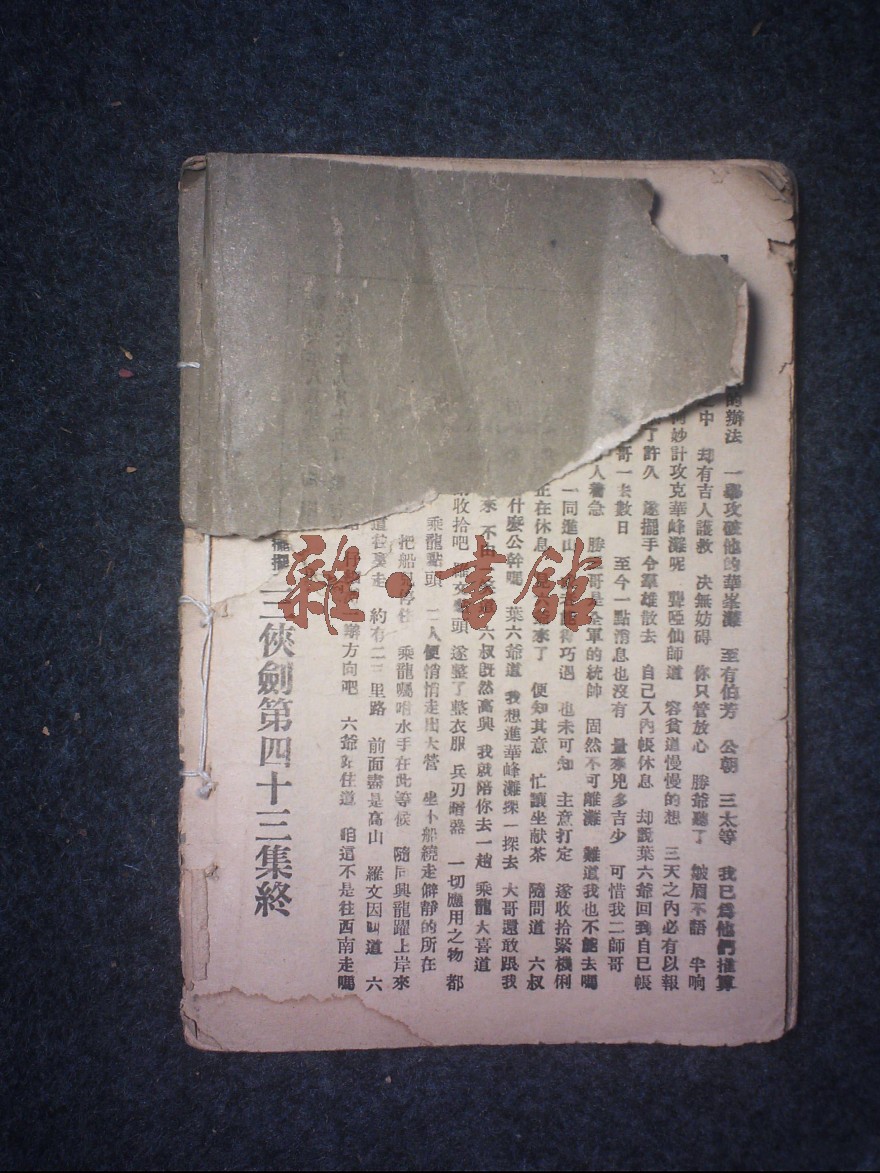 的辦法 一舉攻破他的華峯灘 至有伯芳 公朝 三太等 我已爲他們推算
中 却有吉人護救 决無妨碍 你只管放心 勝爺聽了 皺眉不語 半晌
妙計攻克華峰灘呢 聾啞仙師道 容貧道慢慢的想 三天之內必有以報
了許久 遂擺手令羣雄散去 自己入內帳休息 却說葉六爺回到自己帳
哥一去數日 至今一點消息也沒有 量來兇多吉少 可惜我二師哥
人着急 勝哥是全軍的統帥 固然不可離灘 難道我也不能去嗎
一同進山 巧遇 也未可知 主意打定 遂收拾緊機俐
正在休息 來了 便知其意 忙讓坐献茶 隨問道 六叔
什麼公幹嗎 葉六爺道 我想進華峰灘探一探去 大哥還敢跟我
來 不由 六叔既然高興 我就陪你去一趟 乘龍大喜道
收拾吧 頭 遂整了整衣服 兵刃暗器 一切應用之物 都
乘龍點頭 二人便悄悄走出大營 坐小船繞走僻靜的所在
把船 停住 乘龍囑咐水手在此等候 隨同興龍躍上岸來
走 約有二三里路 前面盡是高山 羅文因叫道 六
辦方向吧 六爺站住道 咱這不是往西南走嗎
三俠劍第四十三集終
雜·書館